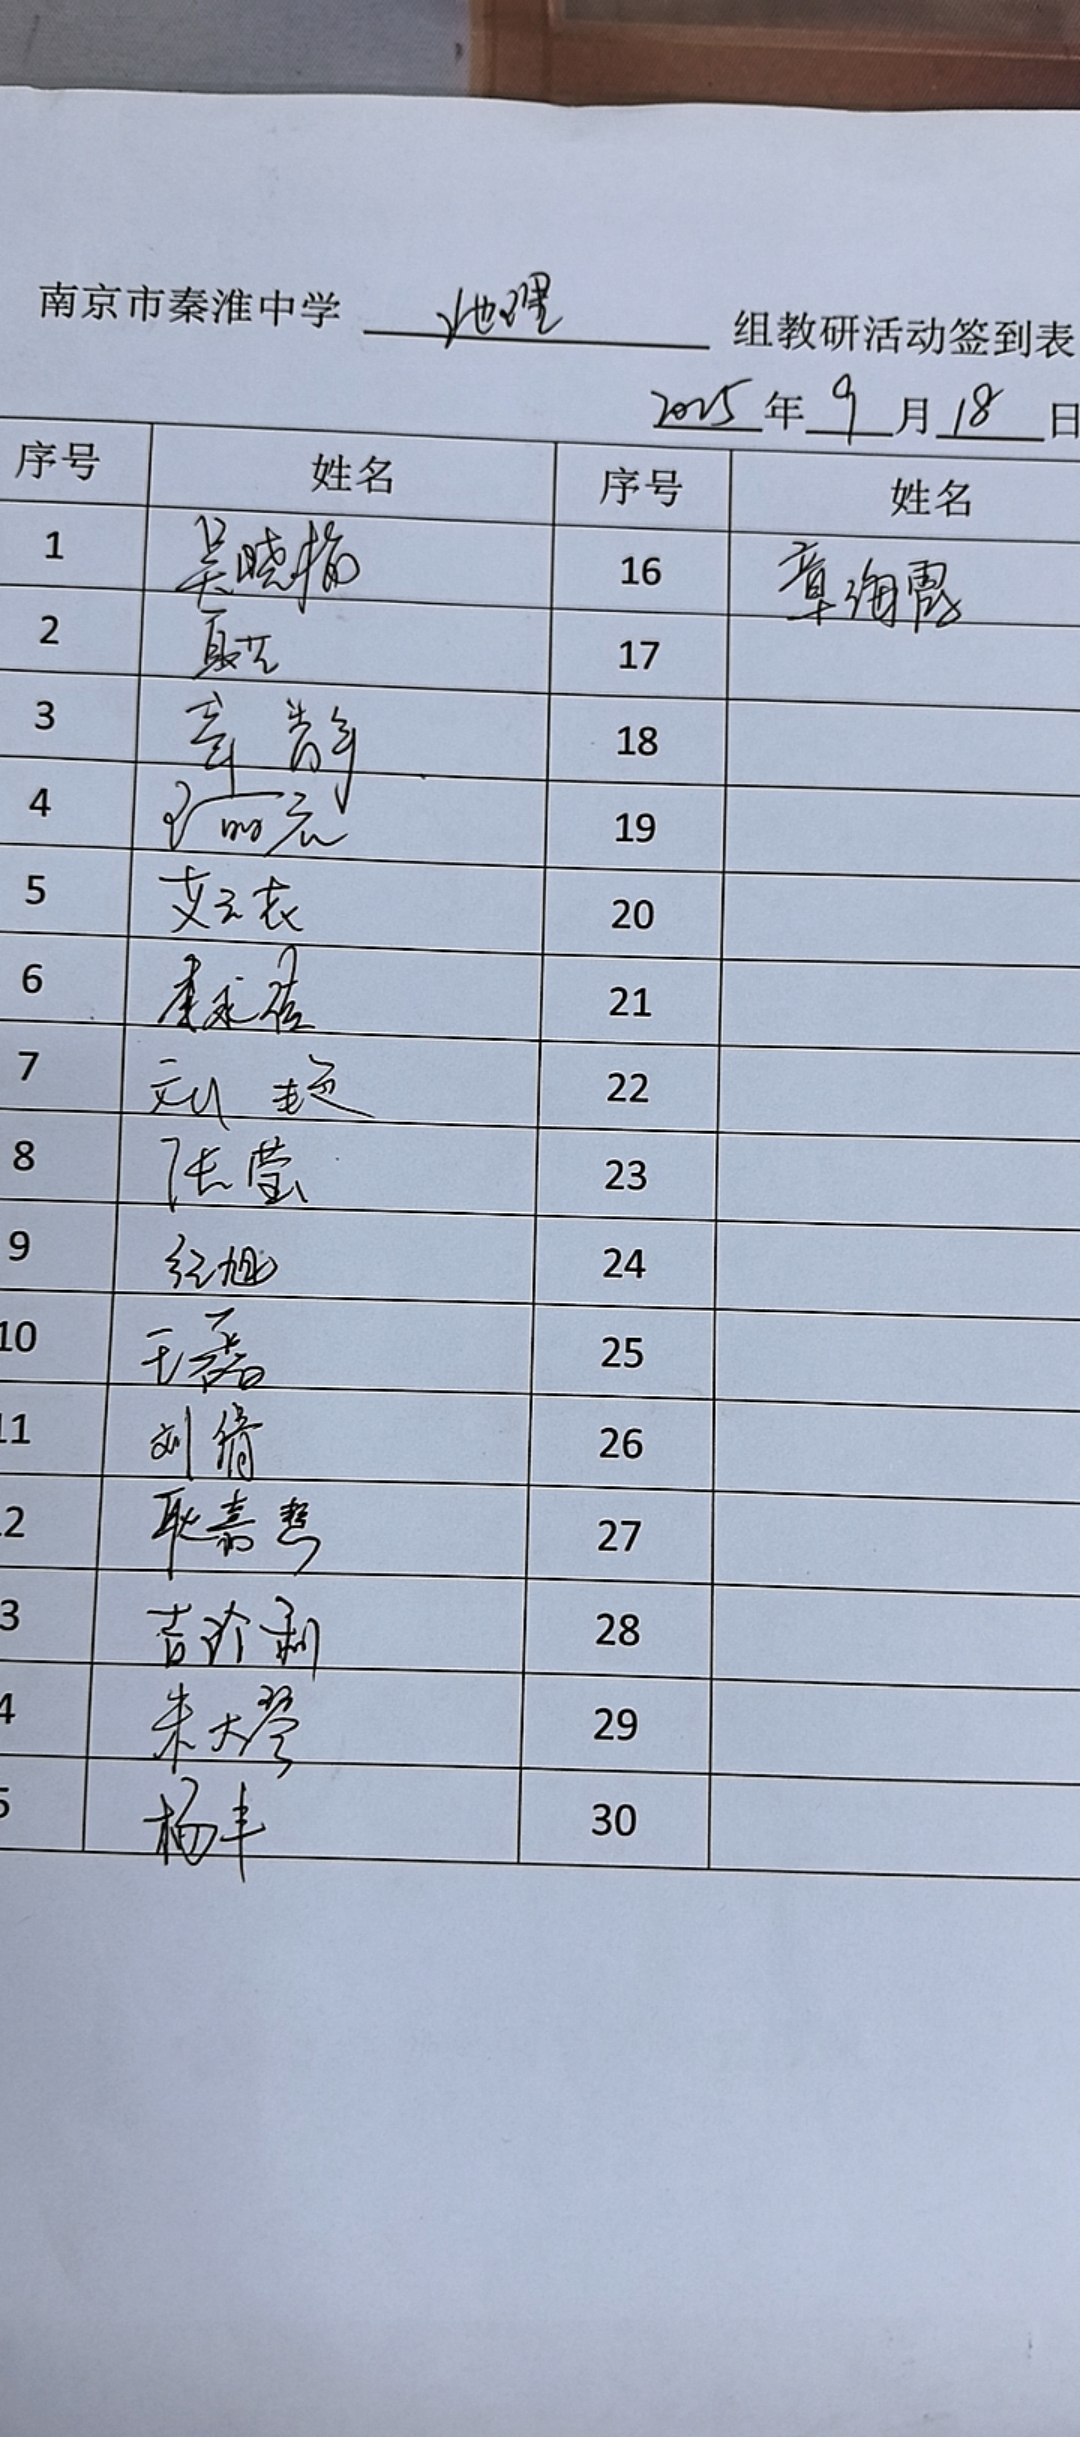 南京市秦淮中学 地理 组教研活动签到表
2025年9月18日
序号 姓名 序号 姓名
1 吴晓梅 16 章海霞
2 17
3 章静 18
4 19
5 20
6 21
7 刘超 22
8 张莹 23
9 24
10 王磊 25
11 刘倩 26
12 耿嘉慧 27
3 28
4 朱大莹 29
5 杨丰 30